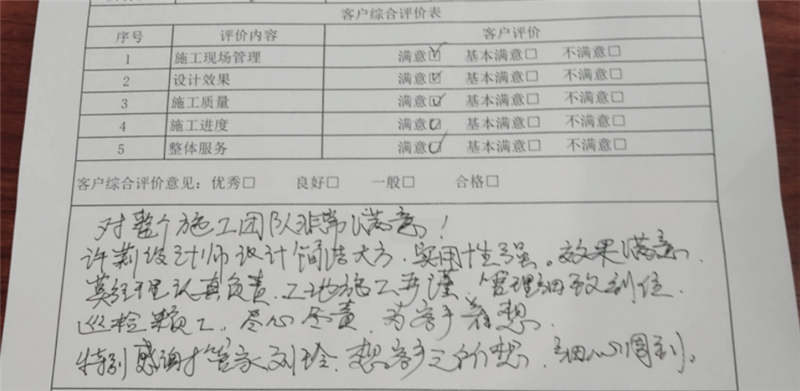 客户综合评价表
序号 评价内容 客户评价
1 施工现场管理 满意☑ 基本满意□ 不满意□
2 设计效果 满意☑ 基本满意□ 不满意□
3 施工质量 满意☑ 基本满意□ 不满意□
4 施工进度 满意☑ 基本满意□ 不满意□
5 整体服务 满意☑ 基本满意□ 不满意□
客户综合评价意见：优秀□ 良好□ 一般□ 合格□
对整个施工团队非常满意！
许莉设计师设计简洁大方、实用性强。效果满意、
莫经理认真负责、工地施工严谨、管理细致到位、
巡检赖工、尽心尽责、为客户着想、
特别感谢管家刘玲、想客户之所想、细心周到。